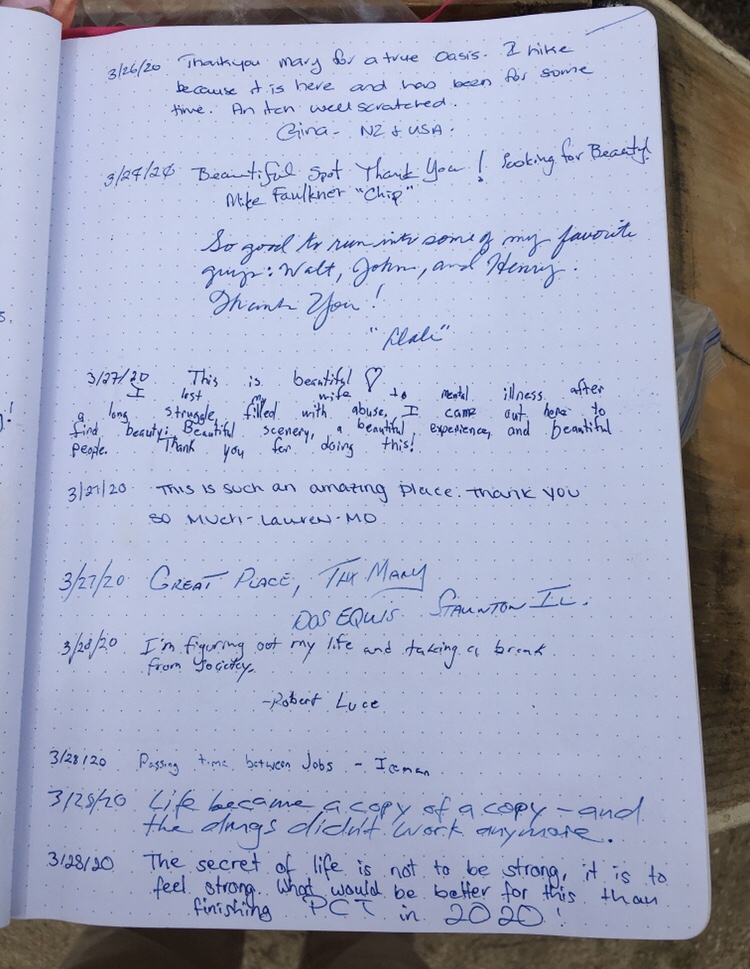 3/26/20 Thankyou mary for a true Oasis. I hike
because it is here and has been for some
time. An itch well scratched.
Gina - NZ & USA.
3/24/20 Beautiful Spot Thank You! Looking for Beauty!
Mike Faulkner "Chip"
So good to run into some of my favorite
guys: Walt, John, and Henry.
Thank You!
3/27/20 This is beautiful ♡
I lost my wife to mental illness after
a long struggle, filled with abuse, I came out here to
find beauty: Beautiful scenery, a beautiful experience, and beautiful
people. Thank you for doing this!
3/27/20 This is such an amazing place. Thank you
so much - Lauren - MO
3/27/20 GREAT PLACE, THX MARY
DOS EQUIS STAUNTON IL.
3/28/20 I'm figuring out my life and taking a break
from society.
-Robert Luce
3/28/20 Passing time between Jobs - Iceman
3/28/20 Life became a copy of a copy - and
the drugs didn't work anymore.
3/28/20 The secret of life is not to be strong, it is to
feel strong. What would be better for this than
finishing PCT in 2020!